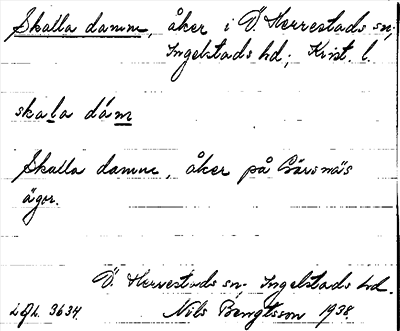 Skalla damm, åker i Ö. Herrestads sn,
Ingelstads hd; Krist. l.
skala dám
Skalla damm, åker på Bäresnäs
ägor.
Ö. Herrestads sn. Ingelstads hd.
Nils Bengtsson 1938.
3634.